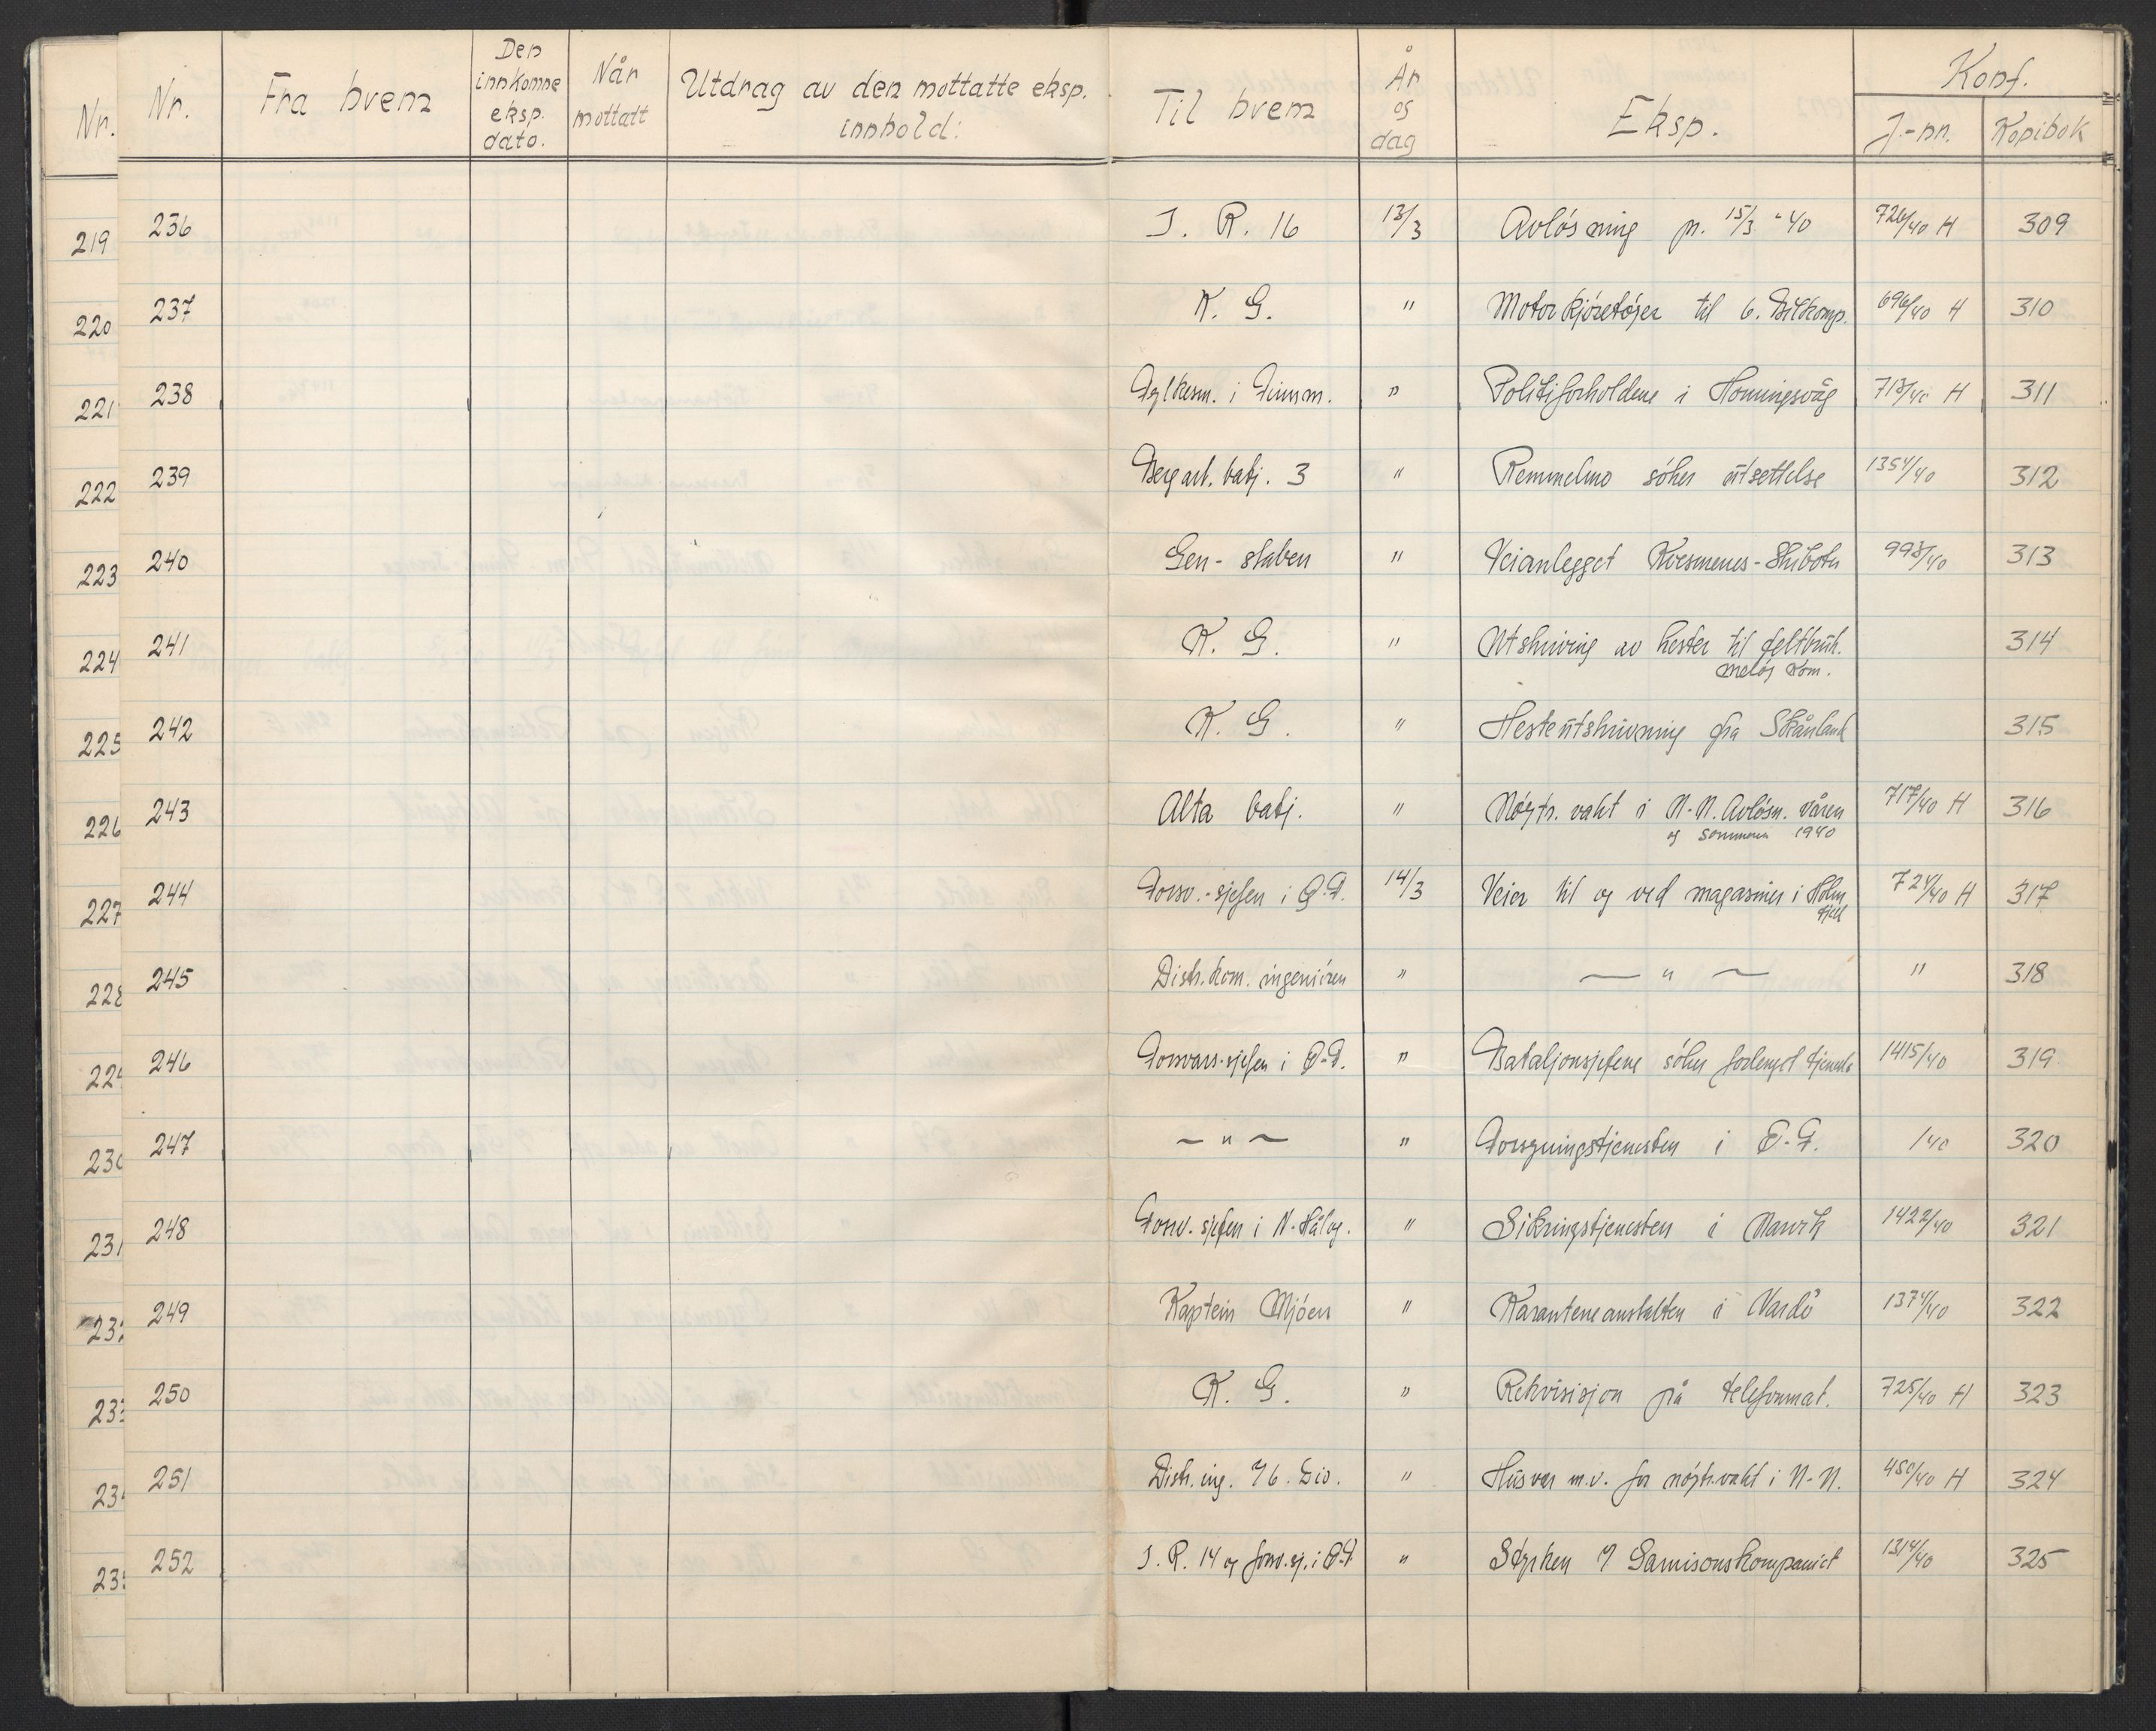 Nr. Nr. Fra hvem Den innkomne eksp. dato. Når mottatt Utdrag av den mottatte eksp. innhold: Til hvem År og dag Eksp. Konf. J.-nr. Kopibok
219 236 I. R. 16 13/3 Avløsning pr. 15/3 - 40 726/40 H 309
220 237 K. G. " Motorkjøretøjer til 6. Bilkomp. 696/40 H 310
221 238 Fylkesm. i Finnm. " Politiforholdene i Honningsvåg 713/40 H 311
222 239 Bergart. batj. 3 " Remmelmo søker utsettelse 1354/40 312
223 240 Gen-staben " Veianlegget Kvesmenes-Skibotn 993/40 313
224 241 K. G. " Utskriving av hester til feltbruk. 314
Meløy kom.
225 242 K. G. " Hesteutskrivning fra Skånland 315
226 243 Alta batj. " Nøytr. vakt i N-N. Avløsn. våren 717/40 H 316
og sommeren 1940
227 244 Forsv.-sjefen i Ø-F. 14/3 Veier til og ved magasiner i Holm 724/40 H 317
fjell
228 245 Distr. kom. ingeniøren " — " — " 318
229 246 Forsvars-sjefen i Ø-F. " Bataljonsjefene søker forlenget tjeneste 1415/40 319
230 247 — " — " Forsyningstjenesten i Ø-F. /40 320
231 248 Forsv. sjefen i N-Hålog. " Sikringstjenesten i Narvik 1422/40 321
232 249 Kaptein Mjøen " Karanteneanstalten i Vardø 1374/40 322
233 250 K. G. " Rekvisisjon på telefonmat. 725/40 H 323
251 Distr. ing. 7/6. Div. " Husvær m.v. for nøytr.vakt i N-N. 450/40 H 324
235 252 I. R. 14 og forsv.sj. i Ø-F " Styrken 7 Garnisonskompaniet 1314/40 325